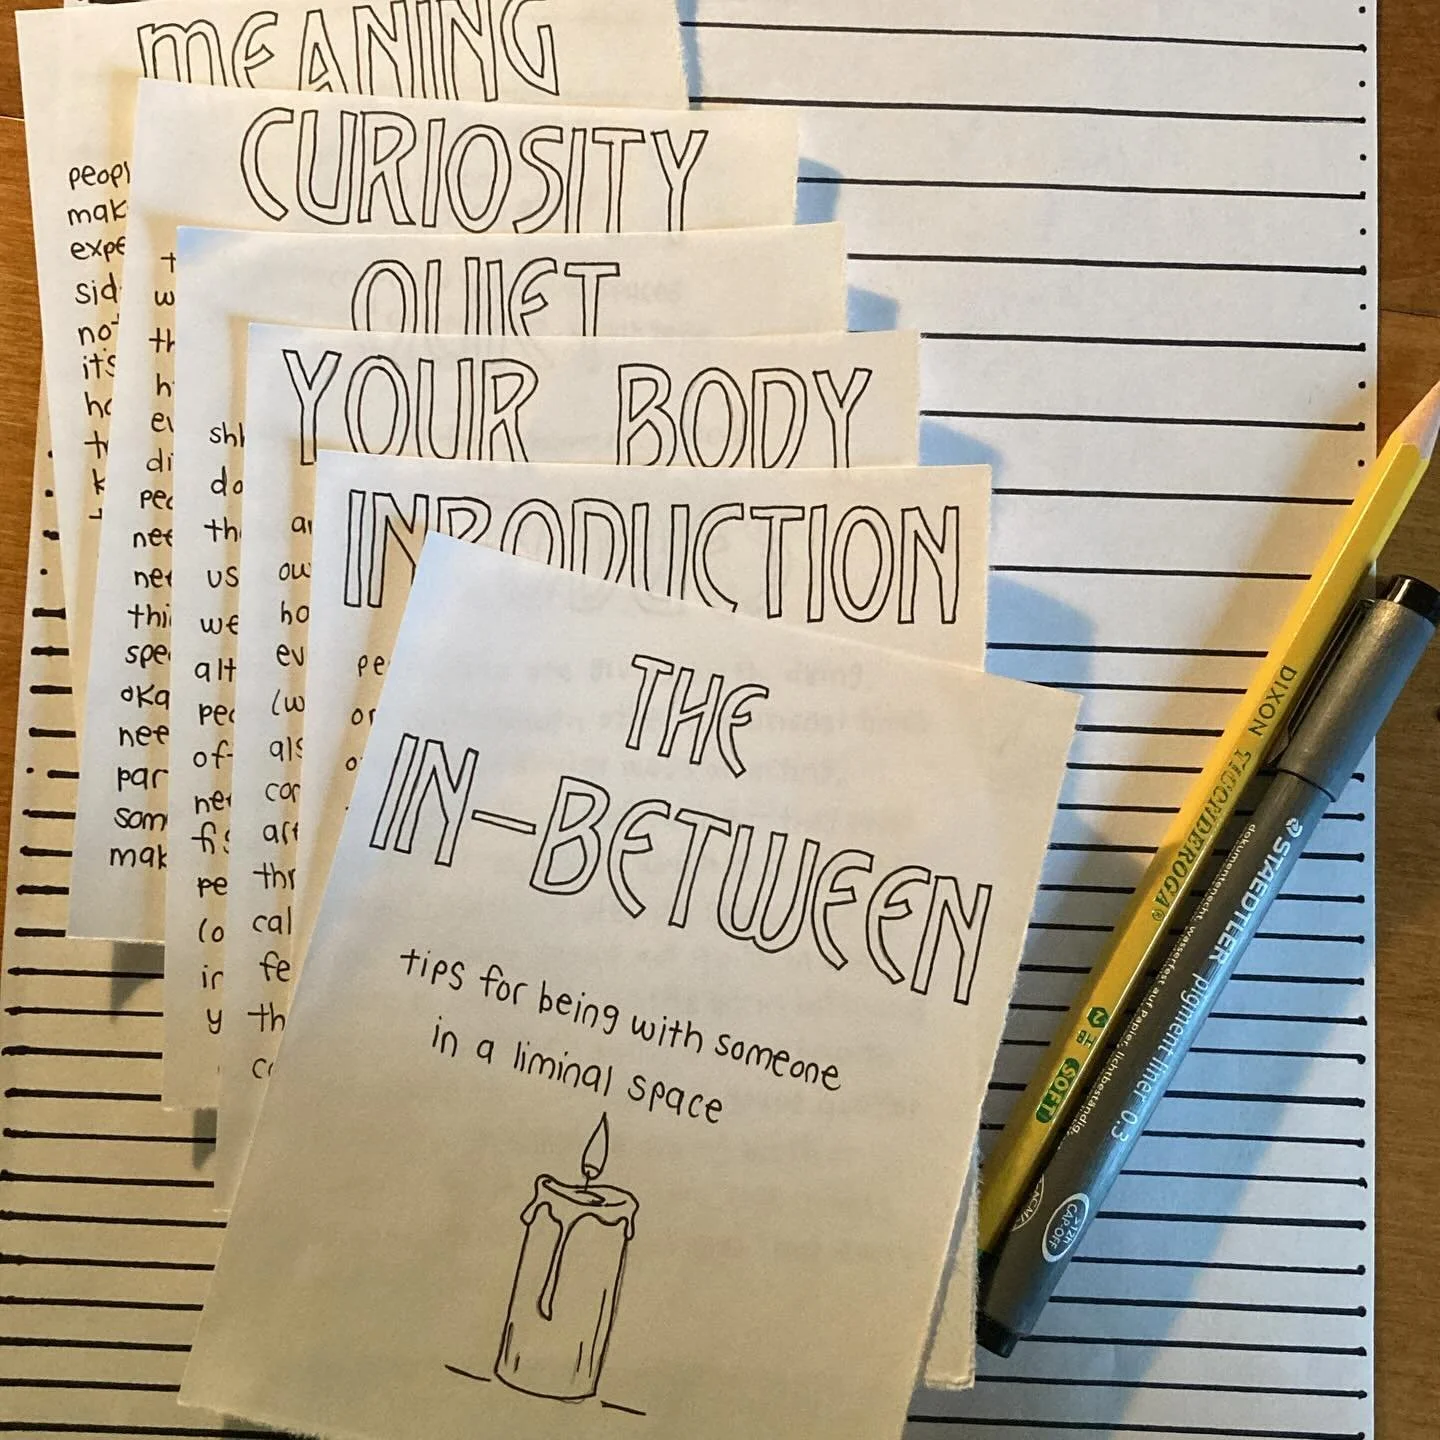 MEANING
peopl
mak
expe
sid
not
it's
ho
k
CURIOSITY
t
w
th
h
ev
di
peo
nee
nee
thi
spe
oka
nee
par
som
mak
QUIET
shh
do
th
us
we
alt
peo
of
ne
pe
(o
in
y
YOUR BODY
ar
ow
ho
ev
(w
als
cor
art
thr
cal
fe
th
INRODUCTION
pe
or
o
THE
IN-BETWEEN
tips for being with someone
in a liminal space
DIXON TICONDEROGA®
2 HB SOFT
STAEDTLER pigment liner 0.3
dokumentenecht, wasserfest auf Papier, lichtbeständig,
ACMI
>12h
CAP-OFF